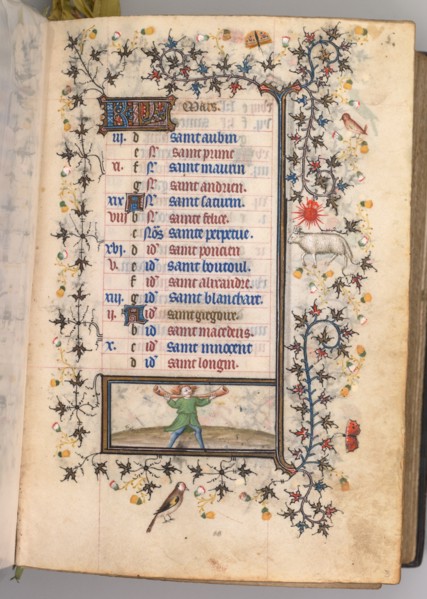 Mars.
iii. d saint aubin
e s. saint prime
xi. f s. saint maurin
g s. saint andrien.
xix A s. saint saturin.
viii b s. saint felice.
c nos sainte perpetue.
xvi. d id. saint poncien
v. e id. saint boutoul.
f id. saint alixandre.
xiii. g id. saint blanchart.
ii. A id. saint gregoire.
b id. saint macedeus.
x. c id. saint innocent
d id. saint longin.